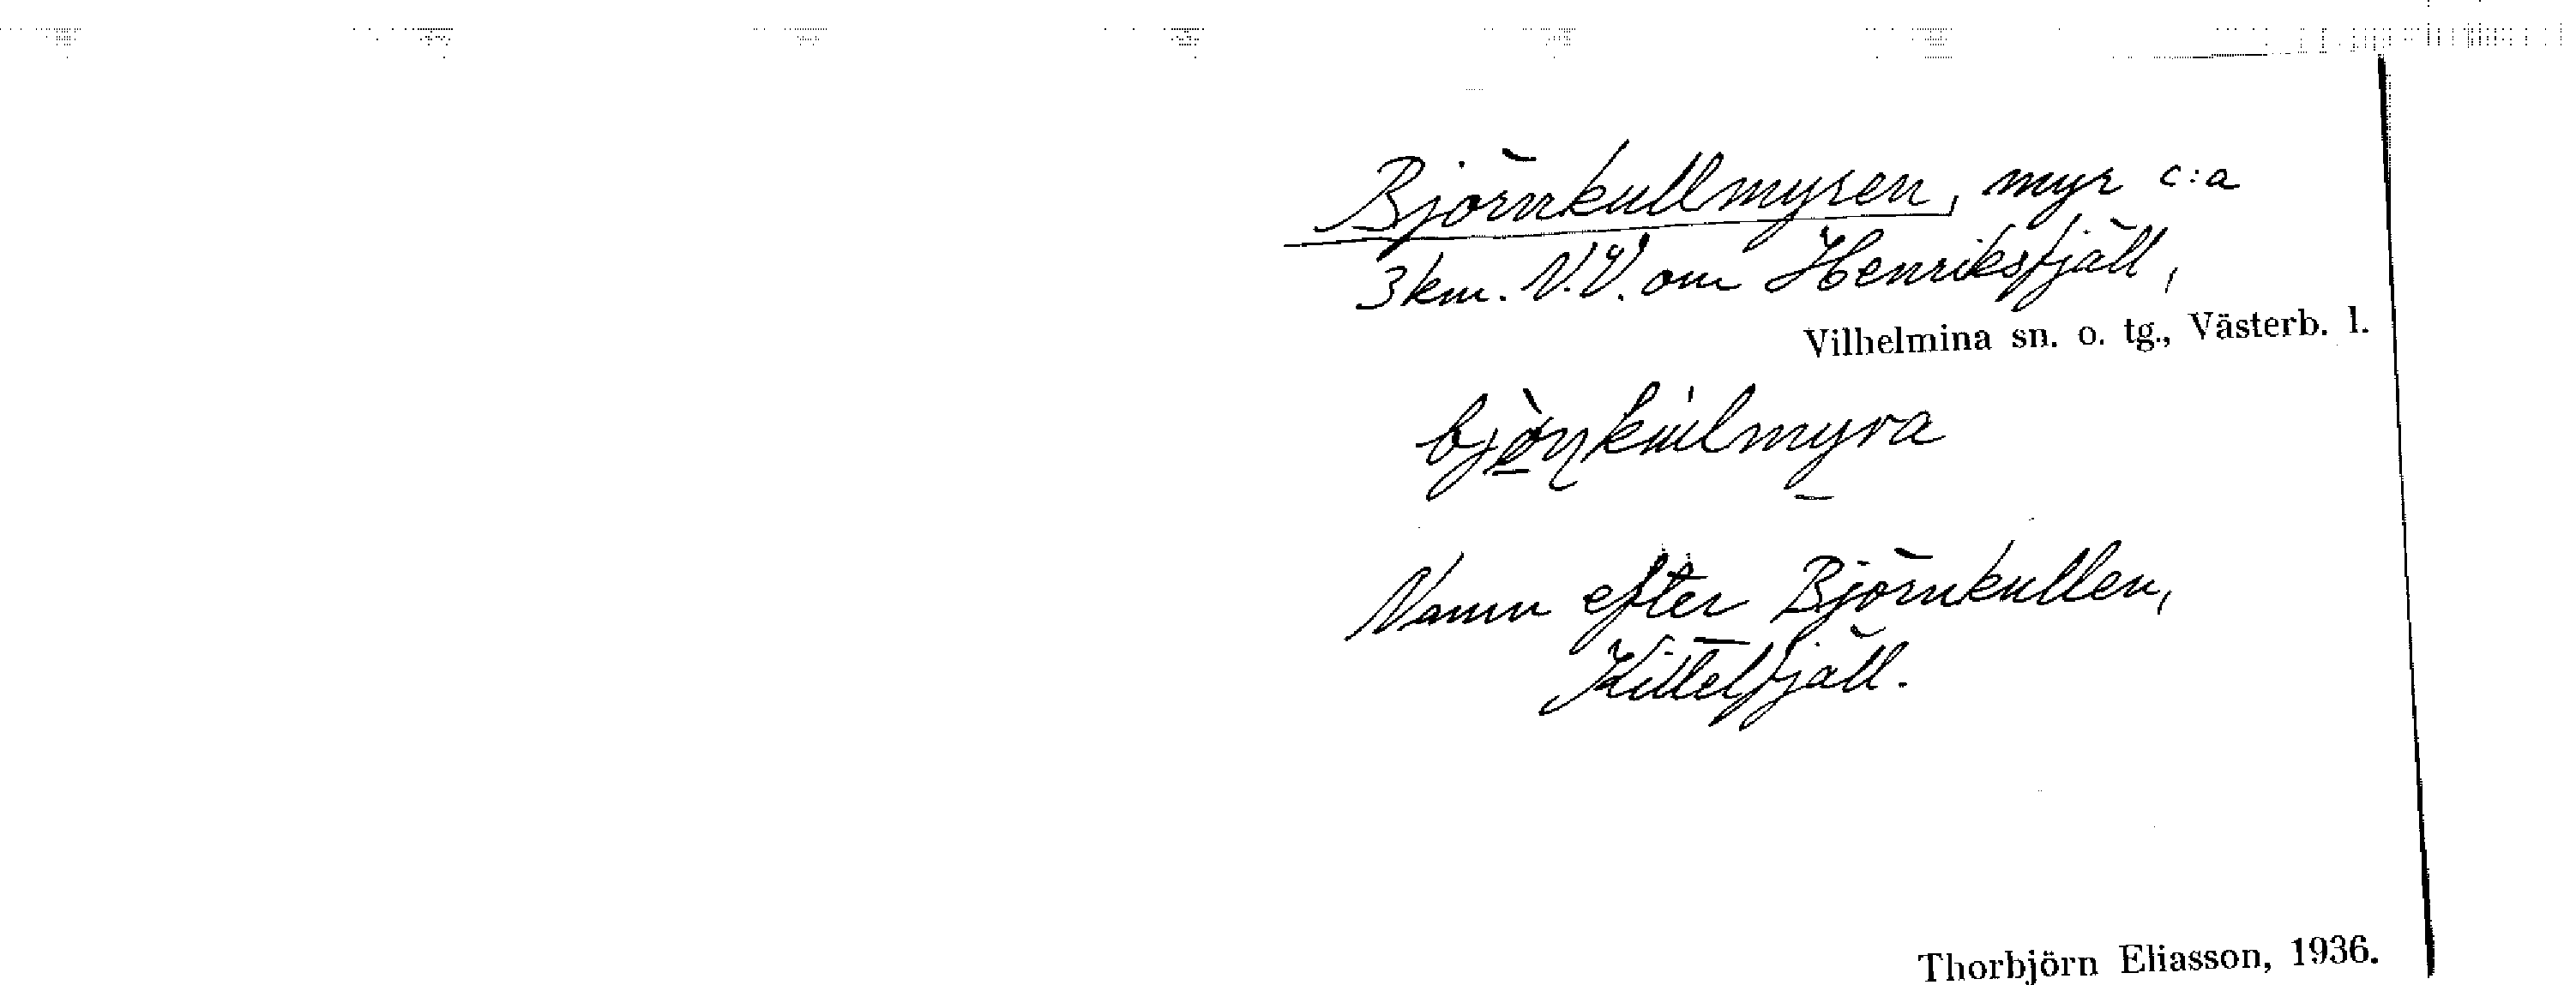 Björnkullmyren, myr c:a
3 km. N.V. om Henriksfjäll,
Vilhelmina sn. o. tg., Västerb. l.
Namn efter Björnkullen,
Kittelfjäll.
Thorbjörn Eliasson, 1936.